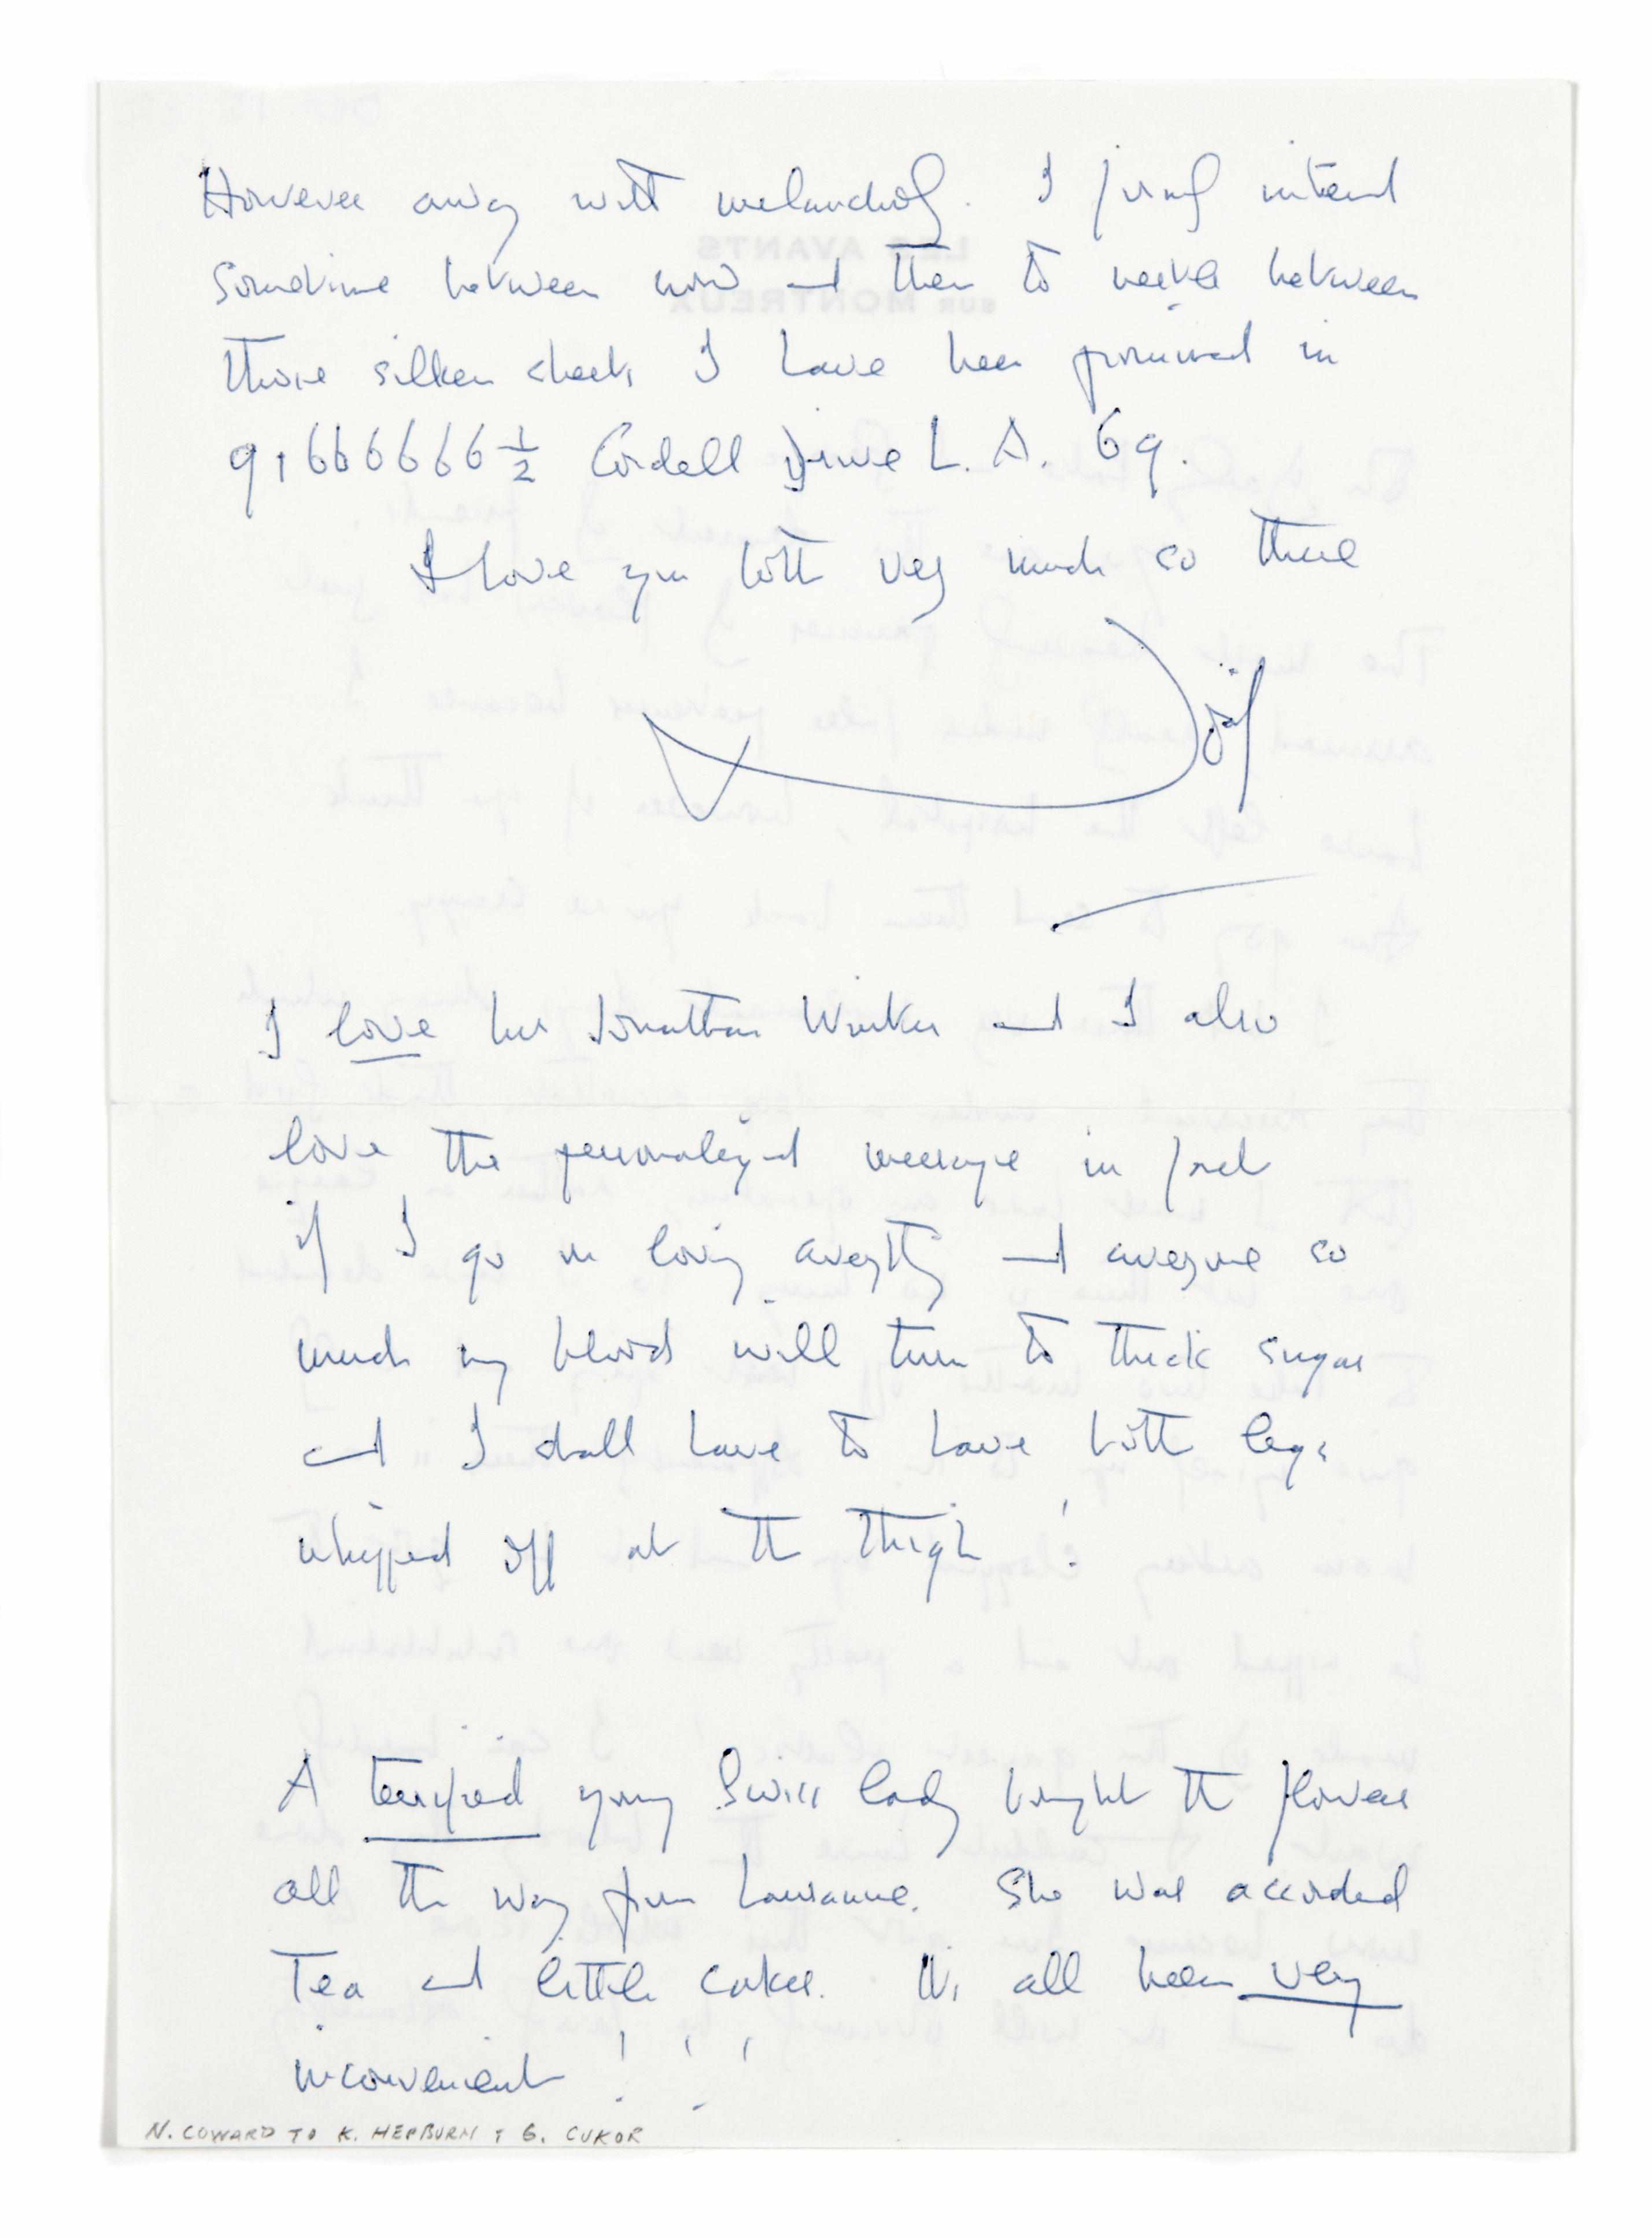 However away with melancholy. I firmly intend
sometime between now and then to nestle between
those silken sheets I have been promised in
9,1666666½ Cordell Drive L. A. 69.
I love you both very much so there
Noël
I love her Jonathan and I also
love the personalized message in fact
if I go on loving everything and everyone so
much my blood will turn to thick sugar
and I shall have to have both legs
whipped off at the thigh!
A terrified young Swiss lady brought the flowers
all the way from Lausanne. She was accorded
Tea and little cakes. It's all been very
inconvenient!!!
N. COWARD TO K. HEPBURN + G. CUKOR
LES AVANTS
SUR MONTREUX